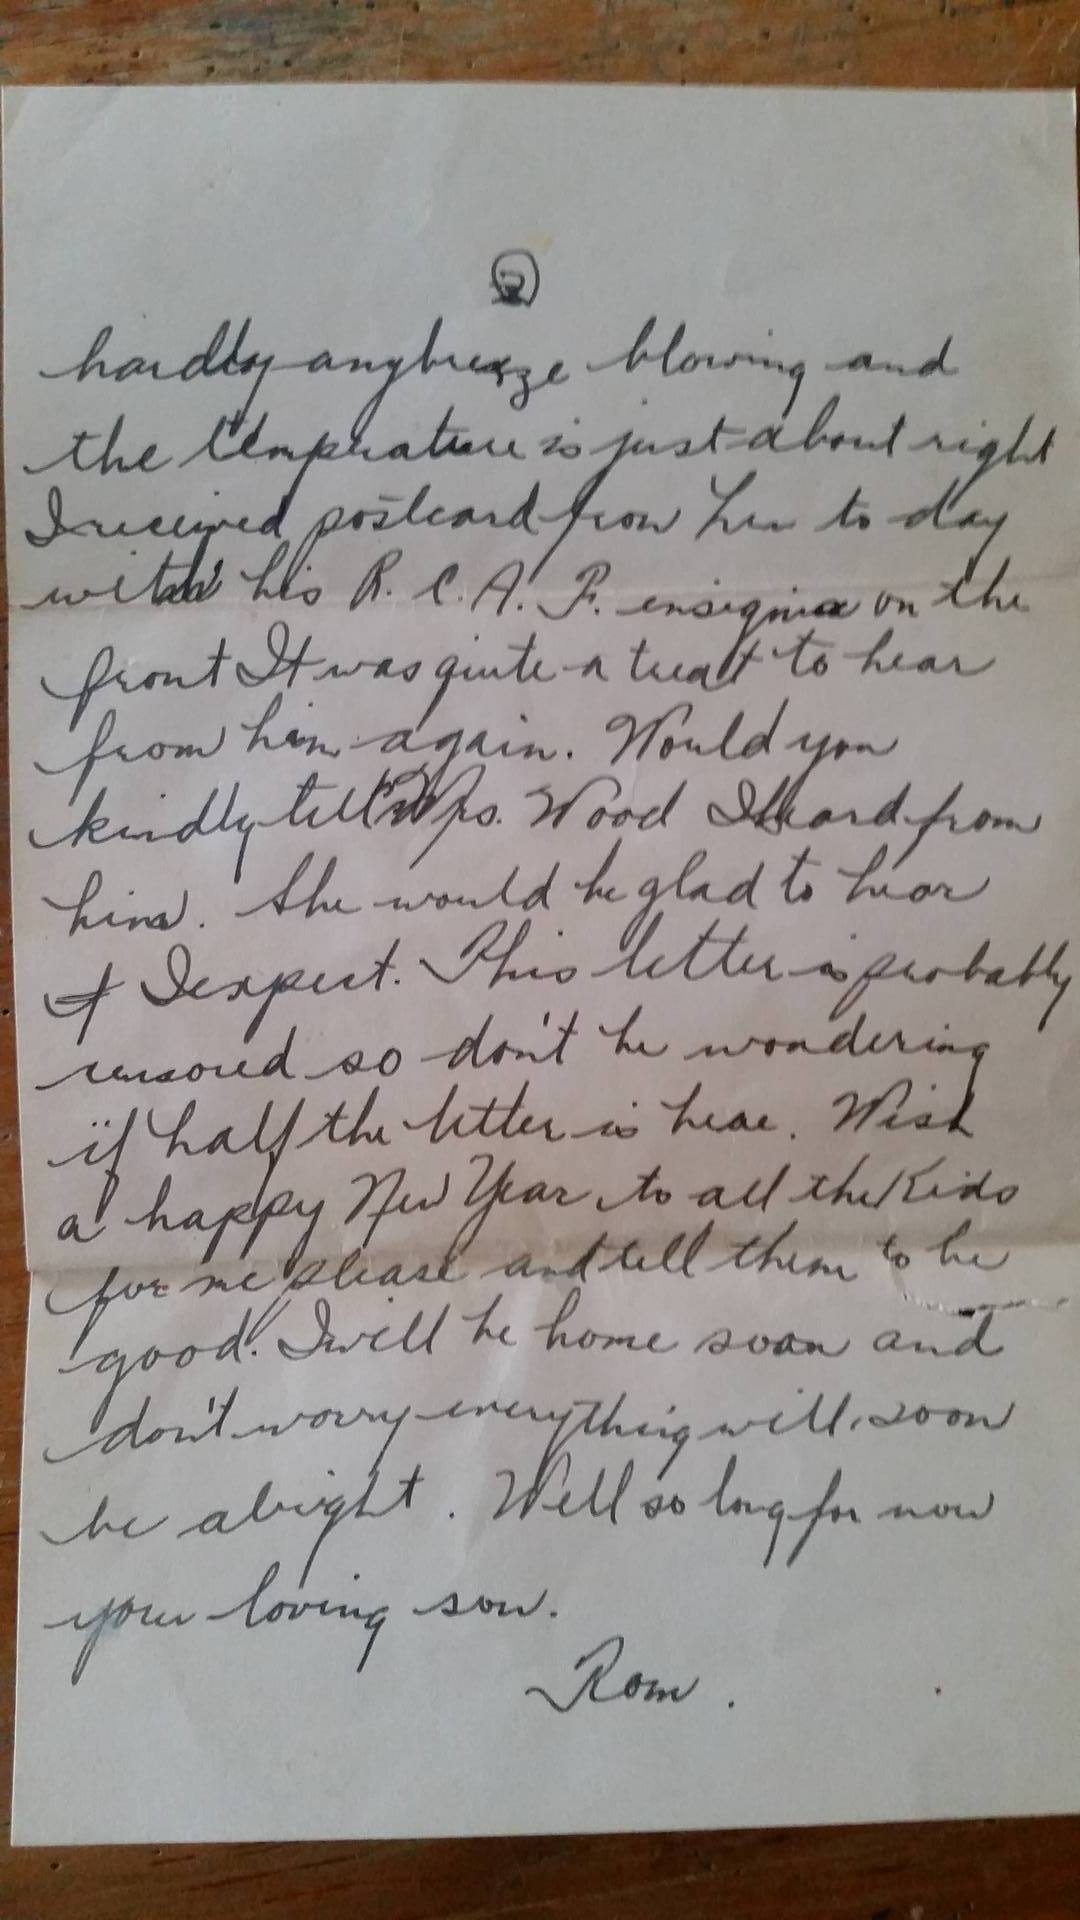 2
hardly any breeze blowing and
the temperature is just about right
I received postcard from Len to day
with his R. C. A. F. ensignia on the
front It was quite a treat to hear
from him again. Would you
kindly tell Mrs. Wood I heard from
him. She would be glad to hear
I expect. This letter is probably
censored so don't be wondering
if half the letter is hear. Wish
a happy New Year to all the Kids
for me please and tell them to be
good. I will be home soon and
don't worry everything will soon
be alright. Well so long for now
your loving son.
Rom.